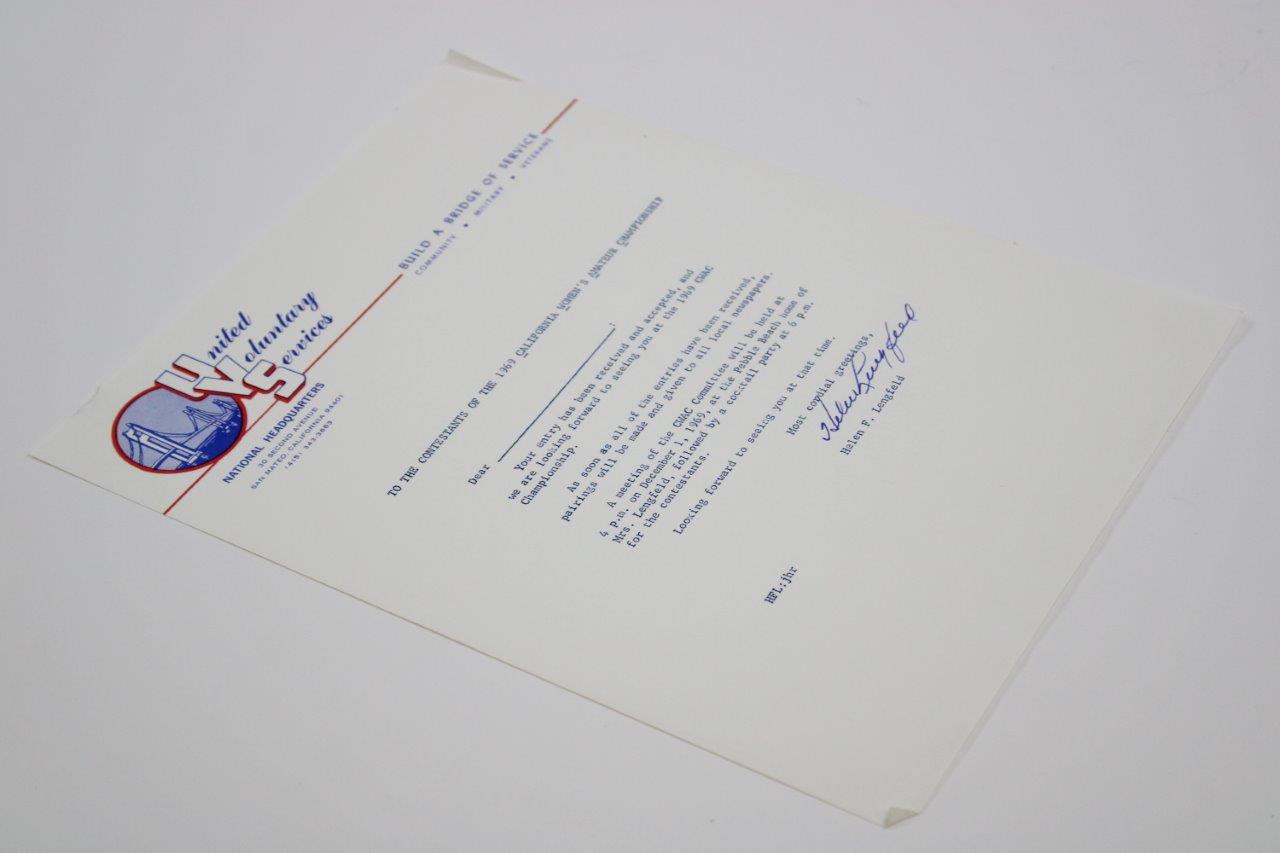 United
Voluntary
Services
NATIONAL HEADQUARTERS
30 SECOND AVENUE
SAN MATEO, CALIFORNIA 94401
(415) 343-3663
BUILD A BRIDGE OF SERVICE
COMMUNITY • MILITARY • VETERANS
TO THE CONTESTANTS OF THE 1969 CALIFORNIA WOMEN'S AMATEUR CHAMPIONSHIP
Dear :
Your entry has been received and accepted, and
we are looking forward to seeing you at the 1969 CWAC
Championship.
As soon as all of the entries have been received,
pairings will be made and given to all local newspapers.
A meeting of the CWAC Committee will be held at
4 p.m. on December 1, 1969, at the Pebble Beach home of
Mrs. Lengfeld, followed by a cocktail party at 6 p.m.
for the contestants.
Looking forward to seeing you at that time.
Most cordial greetings,
Helen Lengfeld
Helen F. Lengfeld
HFL:jhr